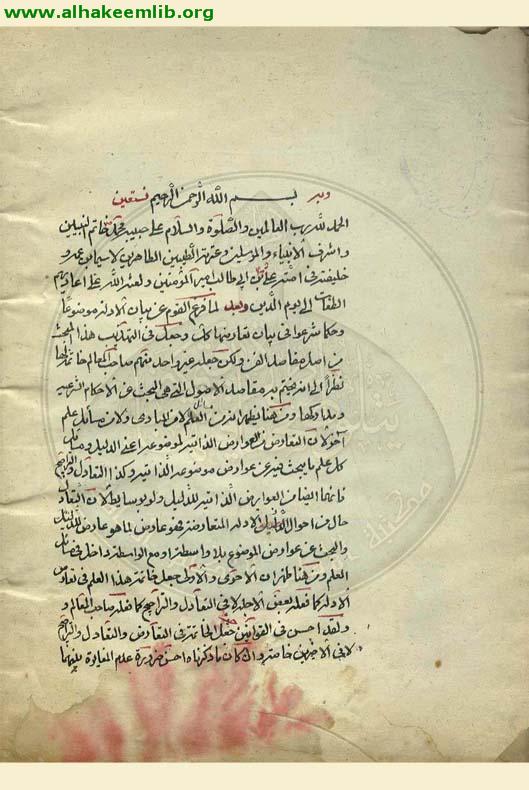 www.alhakeemlib.org
وبه بسم الله الرحمن الرحيم نستعين
الحمد لله رب العالمين والصلوة والسلام على حبيبه محمد خاتم النبيين
واشرف الأنبياء والمرسلين وعترته الطيبين الطاهرين لاسيما ابن عمه و
خليفته في امته علي بن ابي طالب امير المؤمنين ولعنة الله على اعاديهم
الى يوم الدين وبعد لما فرغ القوم عن بيان الأدلة موضوعا
وحكما شرعوا في بيان تعارضها وجعل في التهذيب هذا المبحث
من اصل مقاصد الفن ولكن جعله غير واحد منهم صاحب المعالم خاتمة لها
نظرا الى مقاصد الأصول التي هي البحث عن الأحكام الشرعية
العلم لا من المبادي ولان مسائل علم
التعارض من العوارض الذاتية لموضوعه اعني الدليل ومسائل
كل علم ما يبحث فيه عن عوارض موضوعه الذاتية وكذا التعادل والتراجيح
فانهما ايضا من العوارض الذاتية للدليل ولو بوسايط لان التعادل
حال من احوال الأدلة المتعارضة فهو عارض لما هو عارض للدليل
والبحث عن عوارض الموضوع بلا واسطة او مع الواسطة داخل في مسائل
العلم ومن هنا ظهر ان الأحرى والأولى جعل خاتمة هذا العلم في تعارض
الأدلة كما فعله بعض الأجلة لا في التعادل والتراجيح كما فعله صاحب المعالم و
ولقد احسن في القوانين حيث جعل الخاتمة في التعارض والتعادل والتراجيح
لا في الأخيرين خاصة وان كان ما ذكرناه احسن ضرورة عدم المقابلة بينهما